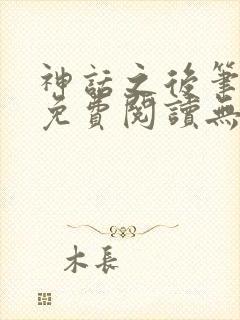 神話之後筆
免費閱讀無
木長